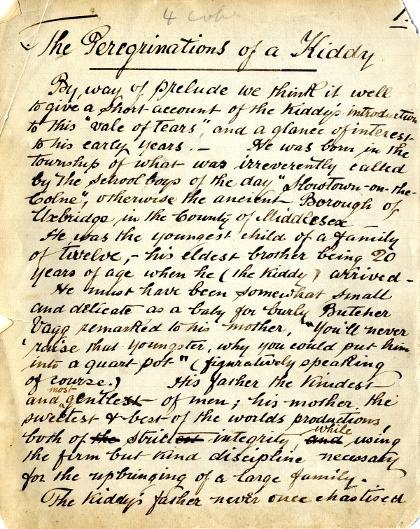 4
1.
The Peregrinations of a Kiddy
By way of prelude we think it well
to give a short account of the Kiddy's introduction
to this "vale of tears", and a glance of interest
to his early years. — He was born in the
township of what was irreverently called
by the school boys of the day "Slowtown-on-the-
Colne", otherwise the ancient Borough of
Uxbridge, in the County of Middlesex
He was the youngest child of a family
of twelve, – his eldest brother being 20
years of age when he (the Kiddy) arrived –
He must have been somewhat small
and delicate as a baby for burly Butcher
remarked to his mother, "You'll never
'raise that youngster, why you could put him
into a quart pot" (figuratively speaking
of course.) His father the kindest
and most gentlest of men; his mother the
sweetest & best of the worlds productions,
both of the strictest integrity and while using
the firm but kind discipline necessary
for the upbringing of a large family.
The Kiddy's father never once chastised